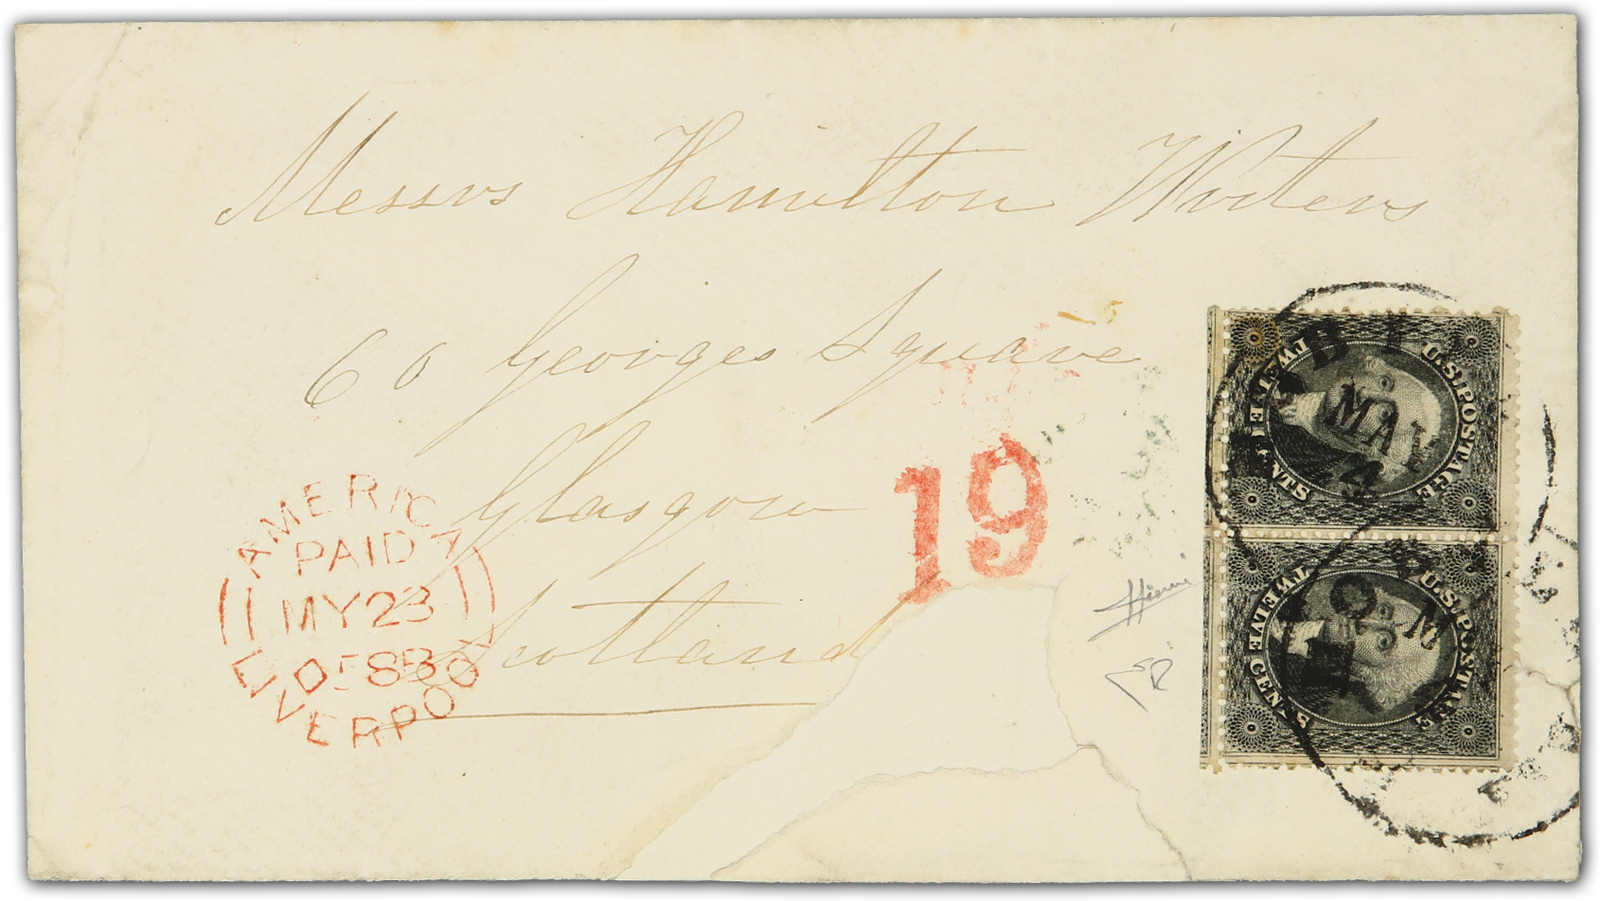 Messrs Hamilton Winters
60 Georges Square
Glasgow
Scotland
19
AMERICA
PAID
MY 23
58
LIVERPOOL
U.S. POSTAGE
TWELVE CENTS
MAY
U.S. POSTAGE
TWELVE CENTS